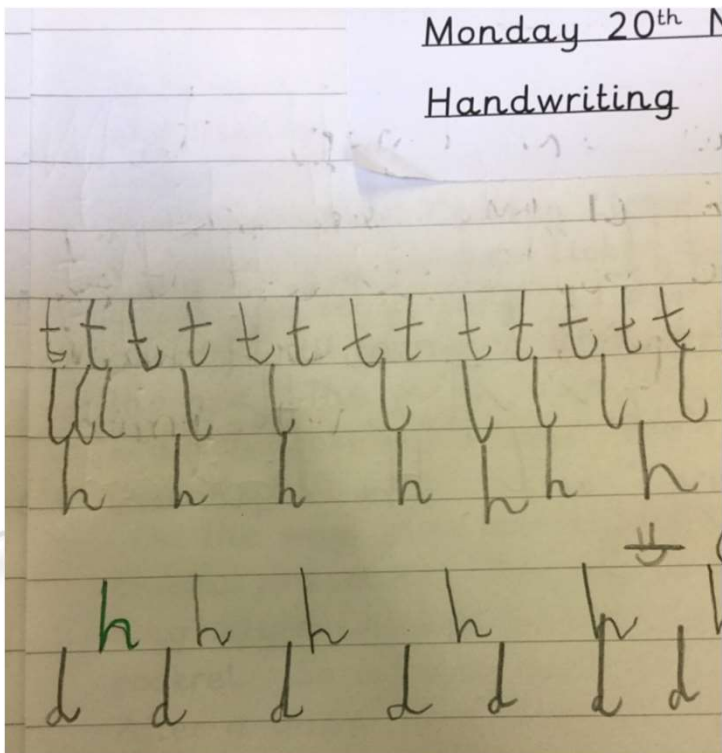 Monday 20th N
Handwriting
t t t t t t t t t t t t t
l l l l l l l l l l
h h h h h h h
h h h h h
d d d d d d d